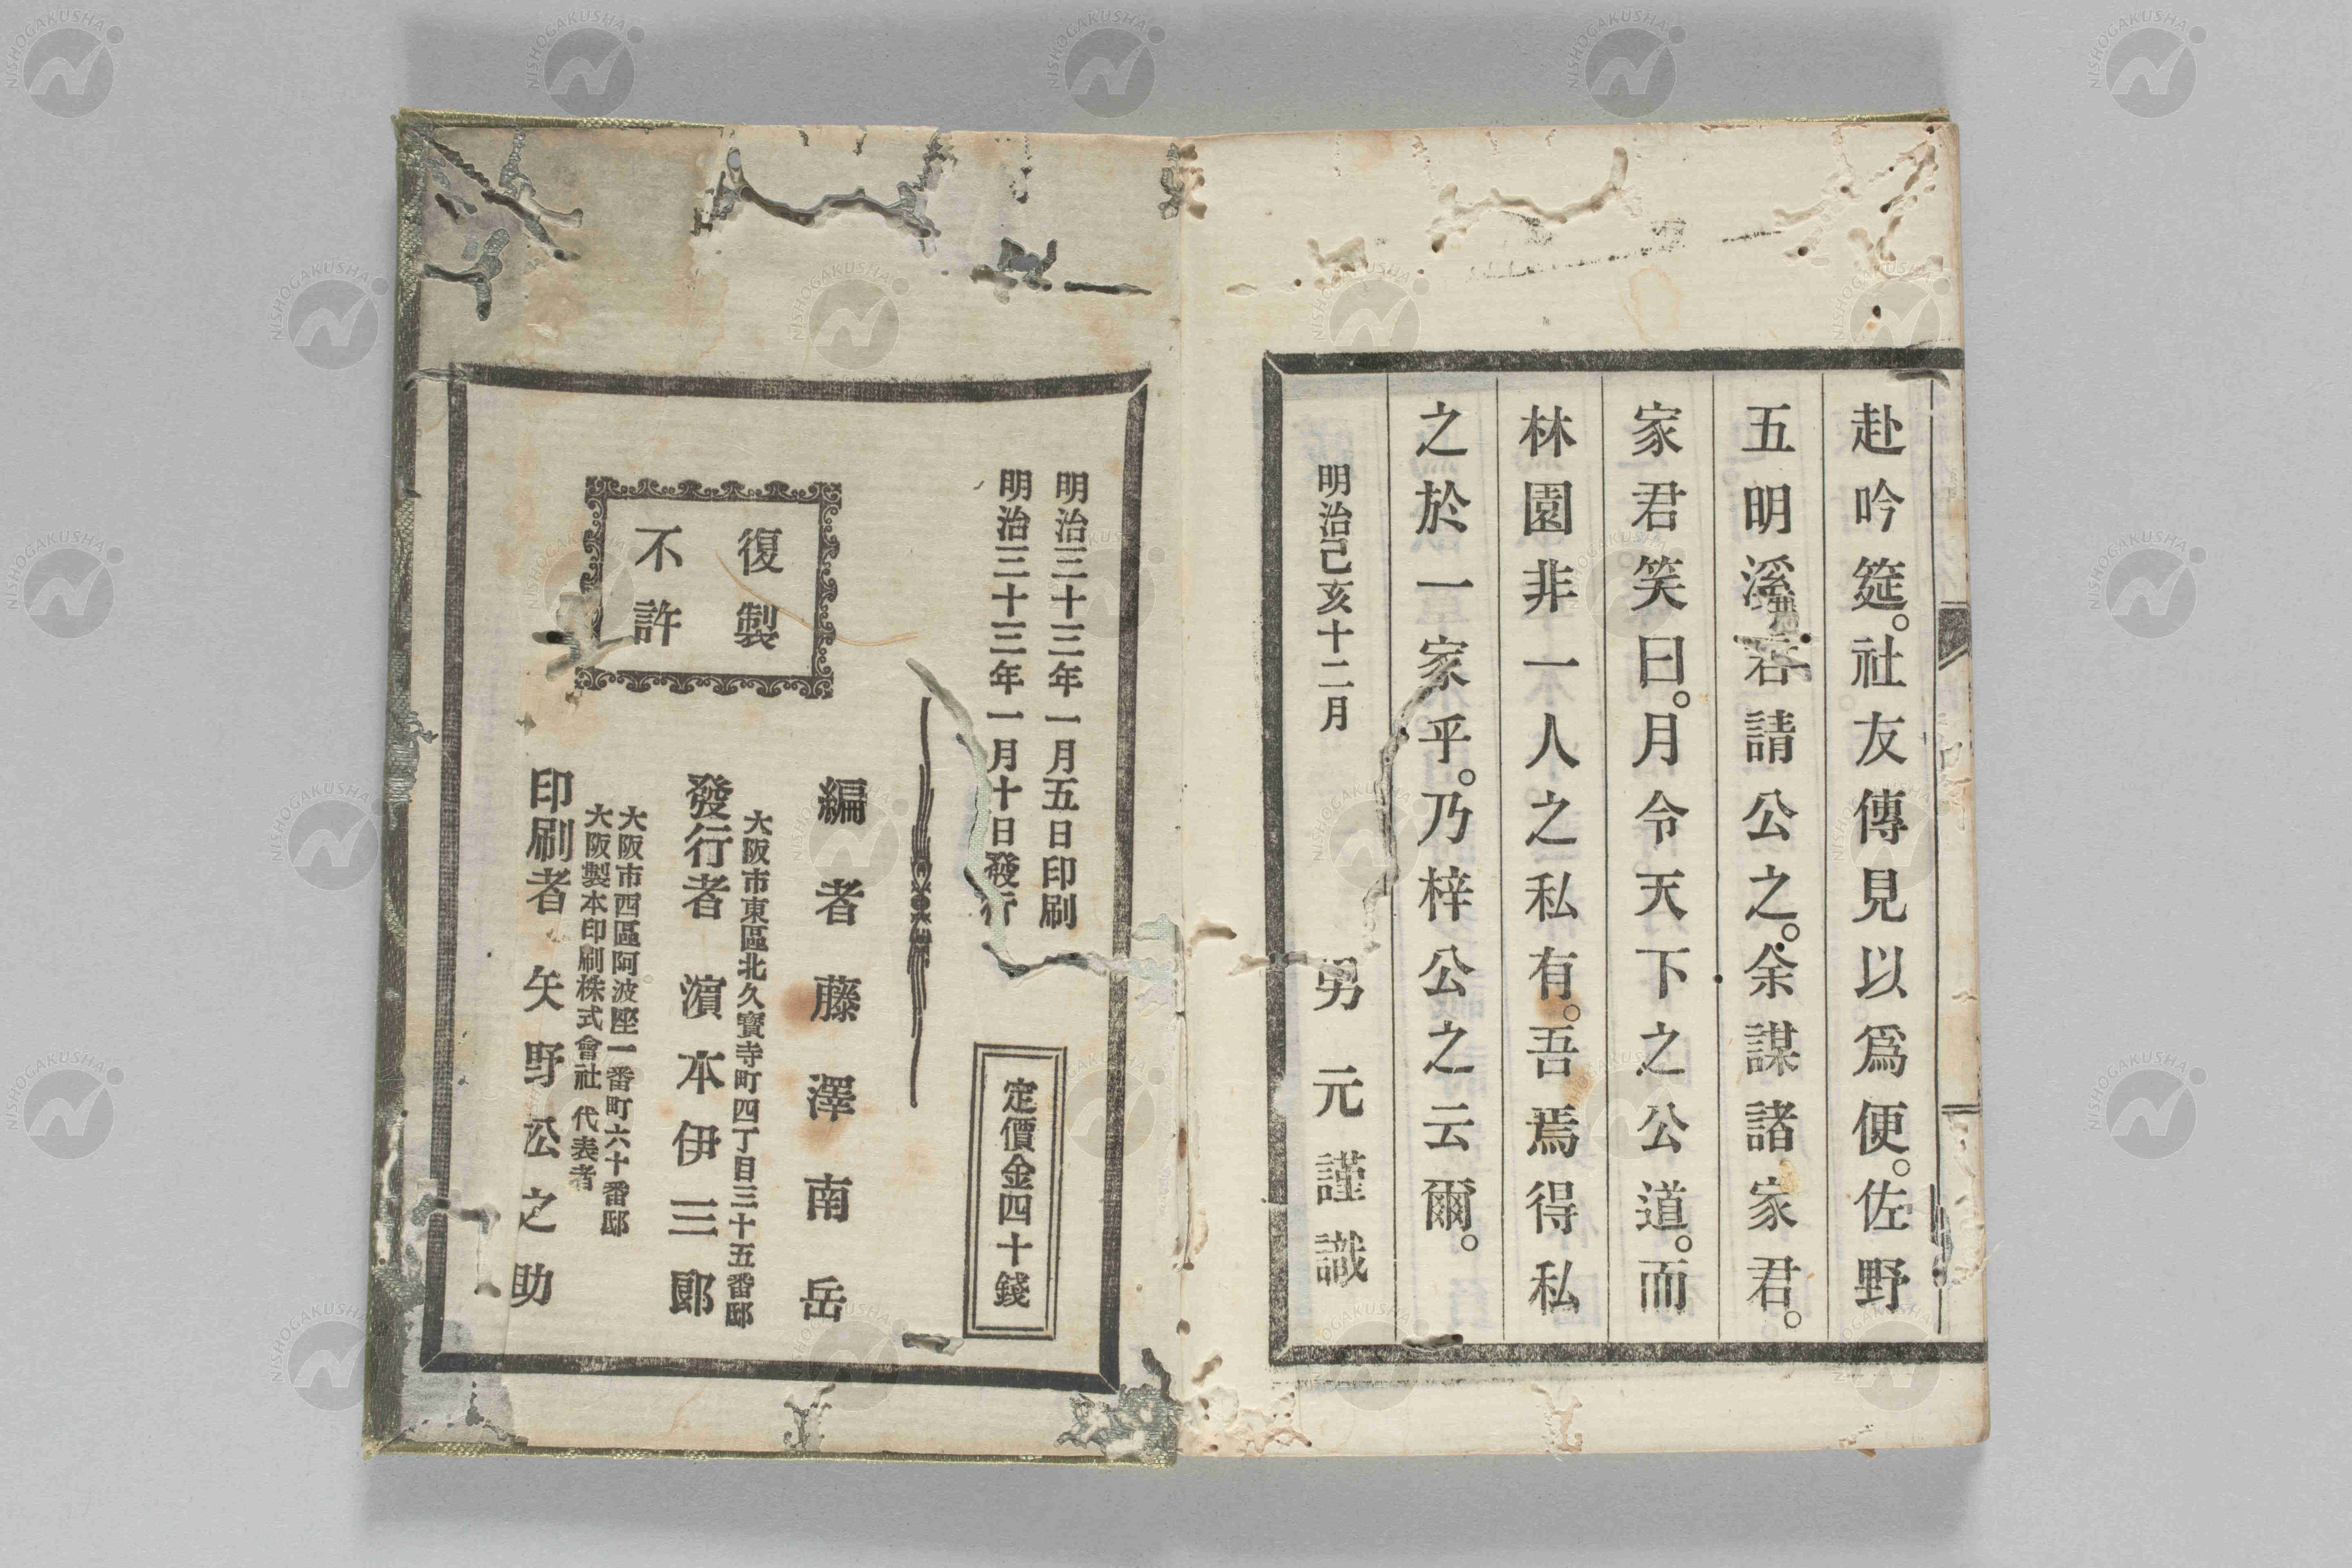 赴吟筵。社友傳見以爲便。佐野
五明溪君請公之。余謀諸家君。
家君笑曰。月令天下之公道。而
林園非一人之私有。吾焉得私
之於一家乎。乃梓公之云爾。
明治己亥十二月 男 元謹識
明治三十三年一月五日印刷
明治三十三年一月十日發行
定價金四十錢
編者 藤澤南岳
大阪市東區北久寶寺町四丁目三十五番邸
發行者 濵本伊三郎
大阪市西區阿波座一番町六十番邸
大阪製本印刷株式會社 代表者
印刷者 矢野松之助
復製
不許
NISHOGAKUSHA